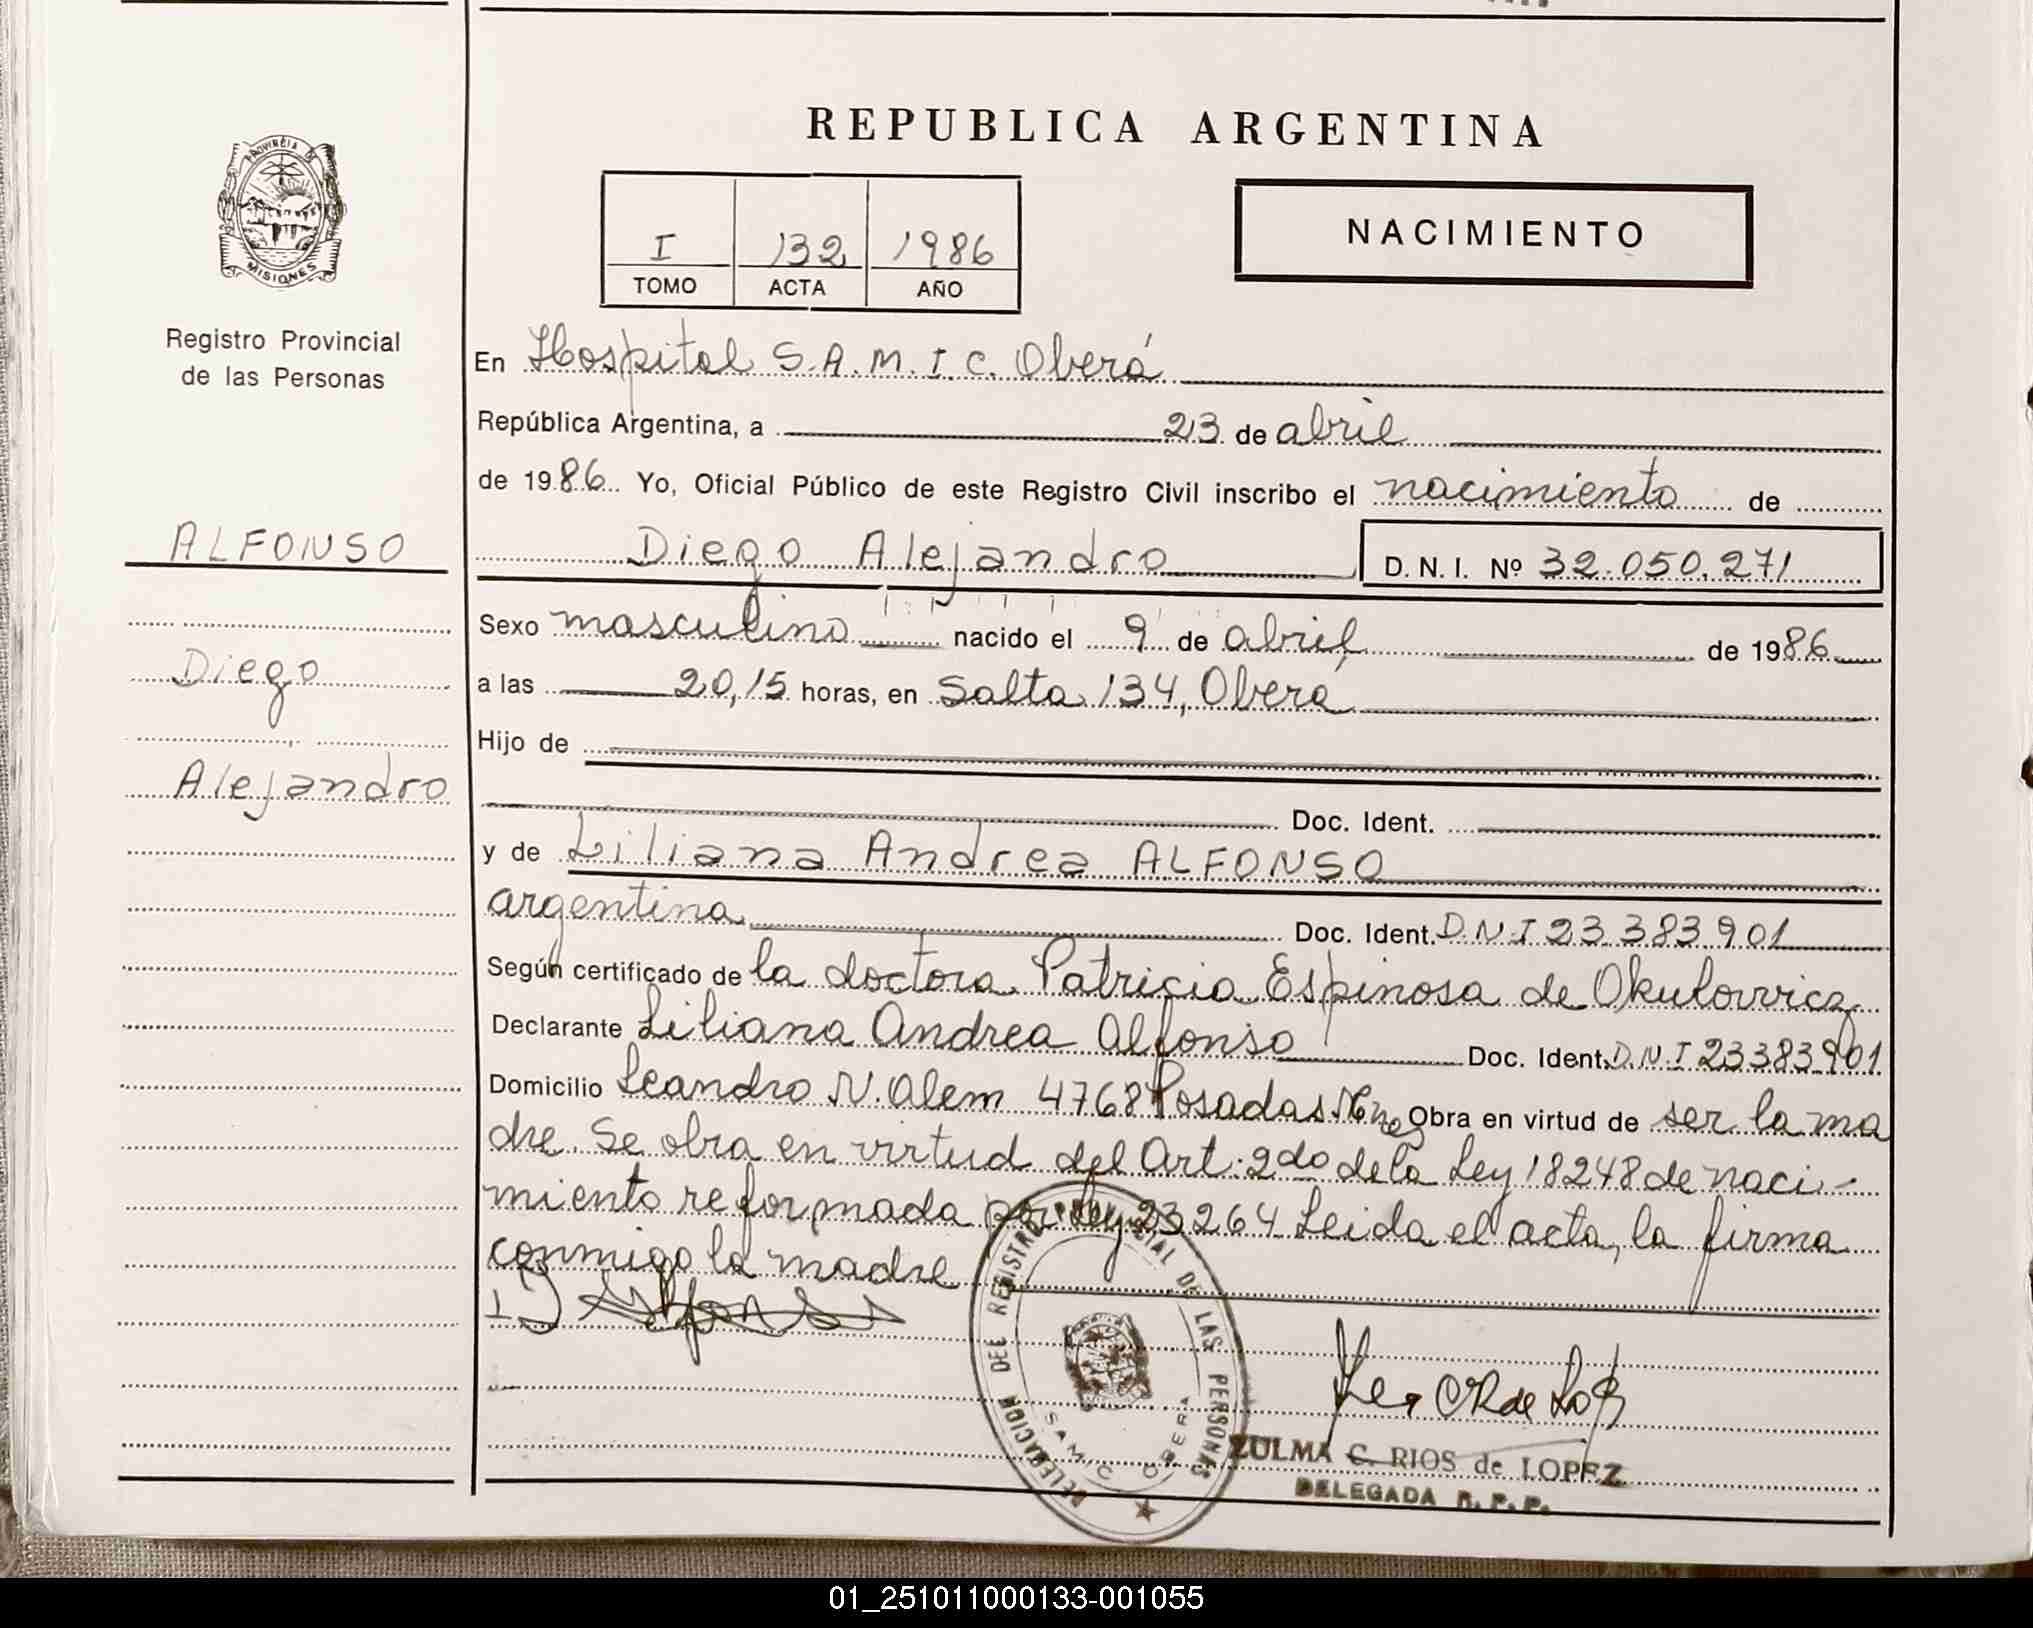 REPUBLICA ARGENTINA
PROVINCIA DE
MISIONES
Registro Provincial
de las Personas
I 132 1986
TOMO ACTA AÑO
NACIMIENTO
En Hospital S.A.M.I.C. Oberá
República Argentina, a 23 de abril
de 1986 Yo, Oficial Público de este Registro Civil inscribo el nacimiento de
ALFONSO
Diego Alejandro D.N.I. Nº 32.050.271
Sexo masculino nacido el 9 de abril de 1986
Diego
a las 20,15 horas, en Salta 134, Oberá
Hijo de
Alejandro
Doc. Ident.
y de Liliana Andrea ALFONSO
argentina Doc. Ident. D.N.I 23.383.901
Según certificado de la doctora Patricia Espinosa de Okulovvicz
Declarante Liliana Andrea Alfonso Doc. Ident. D.N.I 23383901
Domicilio Leandro N. Alem 4768 Posadas Mnes Obra en virtud de ser la ma
dre. Se obra en virtud del Art: 2do de la Ley 18248 de naci-
miento reformada por Ley 23264 Leida el acta, la firma
conmigo la madre
DELEGACION DEL REGISTRO PROVINCIAL DE LAS PERSONAS
S.A.M.I.C. OBERA
ZULMA C. RIOS de LOPEZ
DELEGADA R.P.P.
01_251011000133-001055